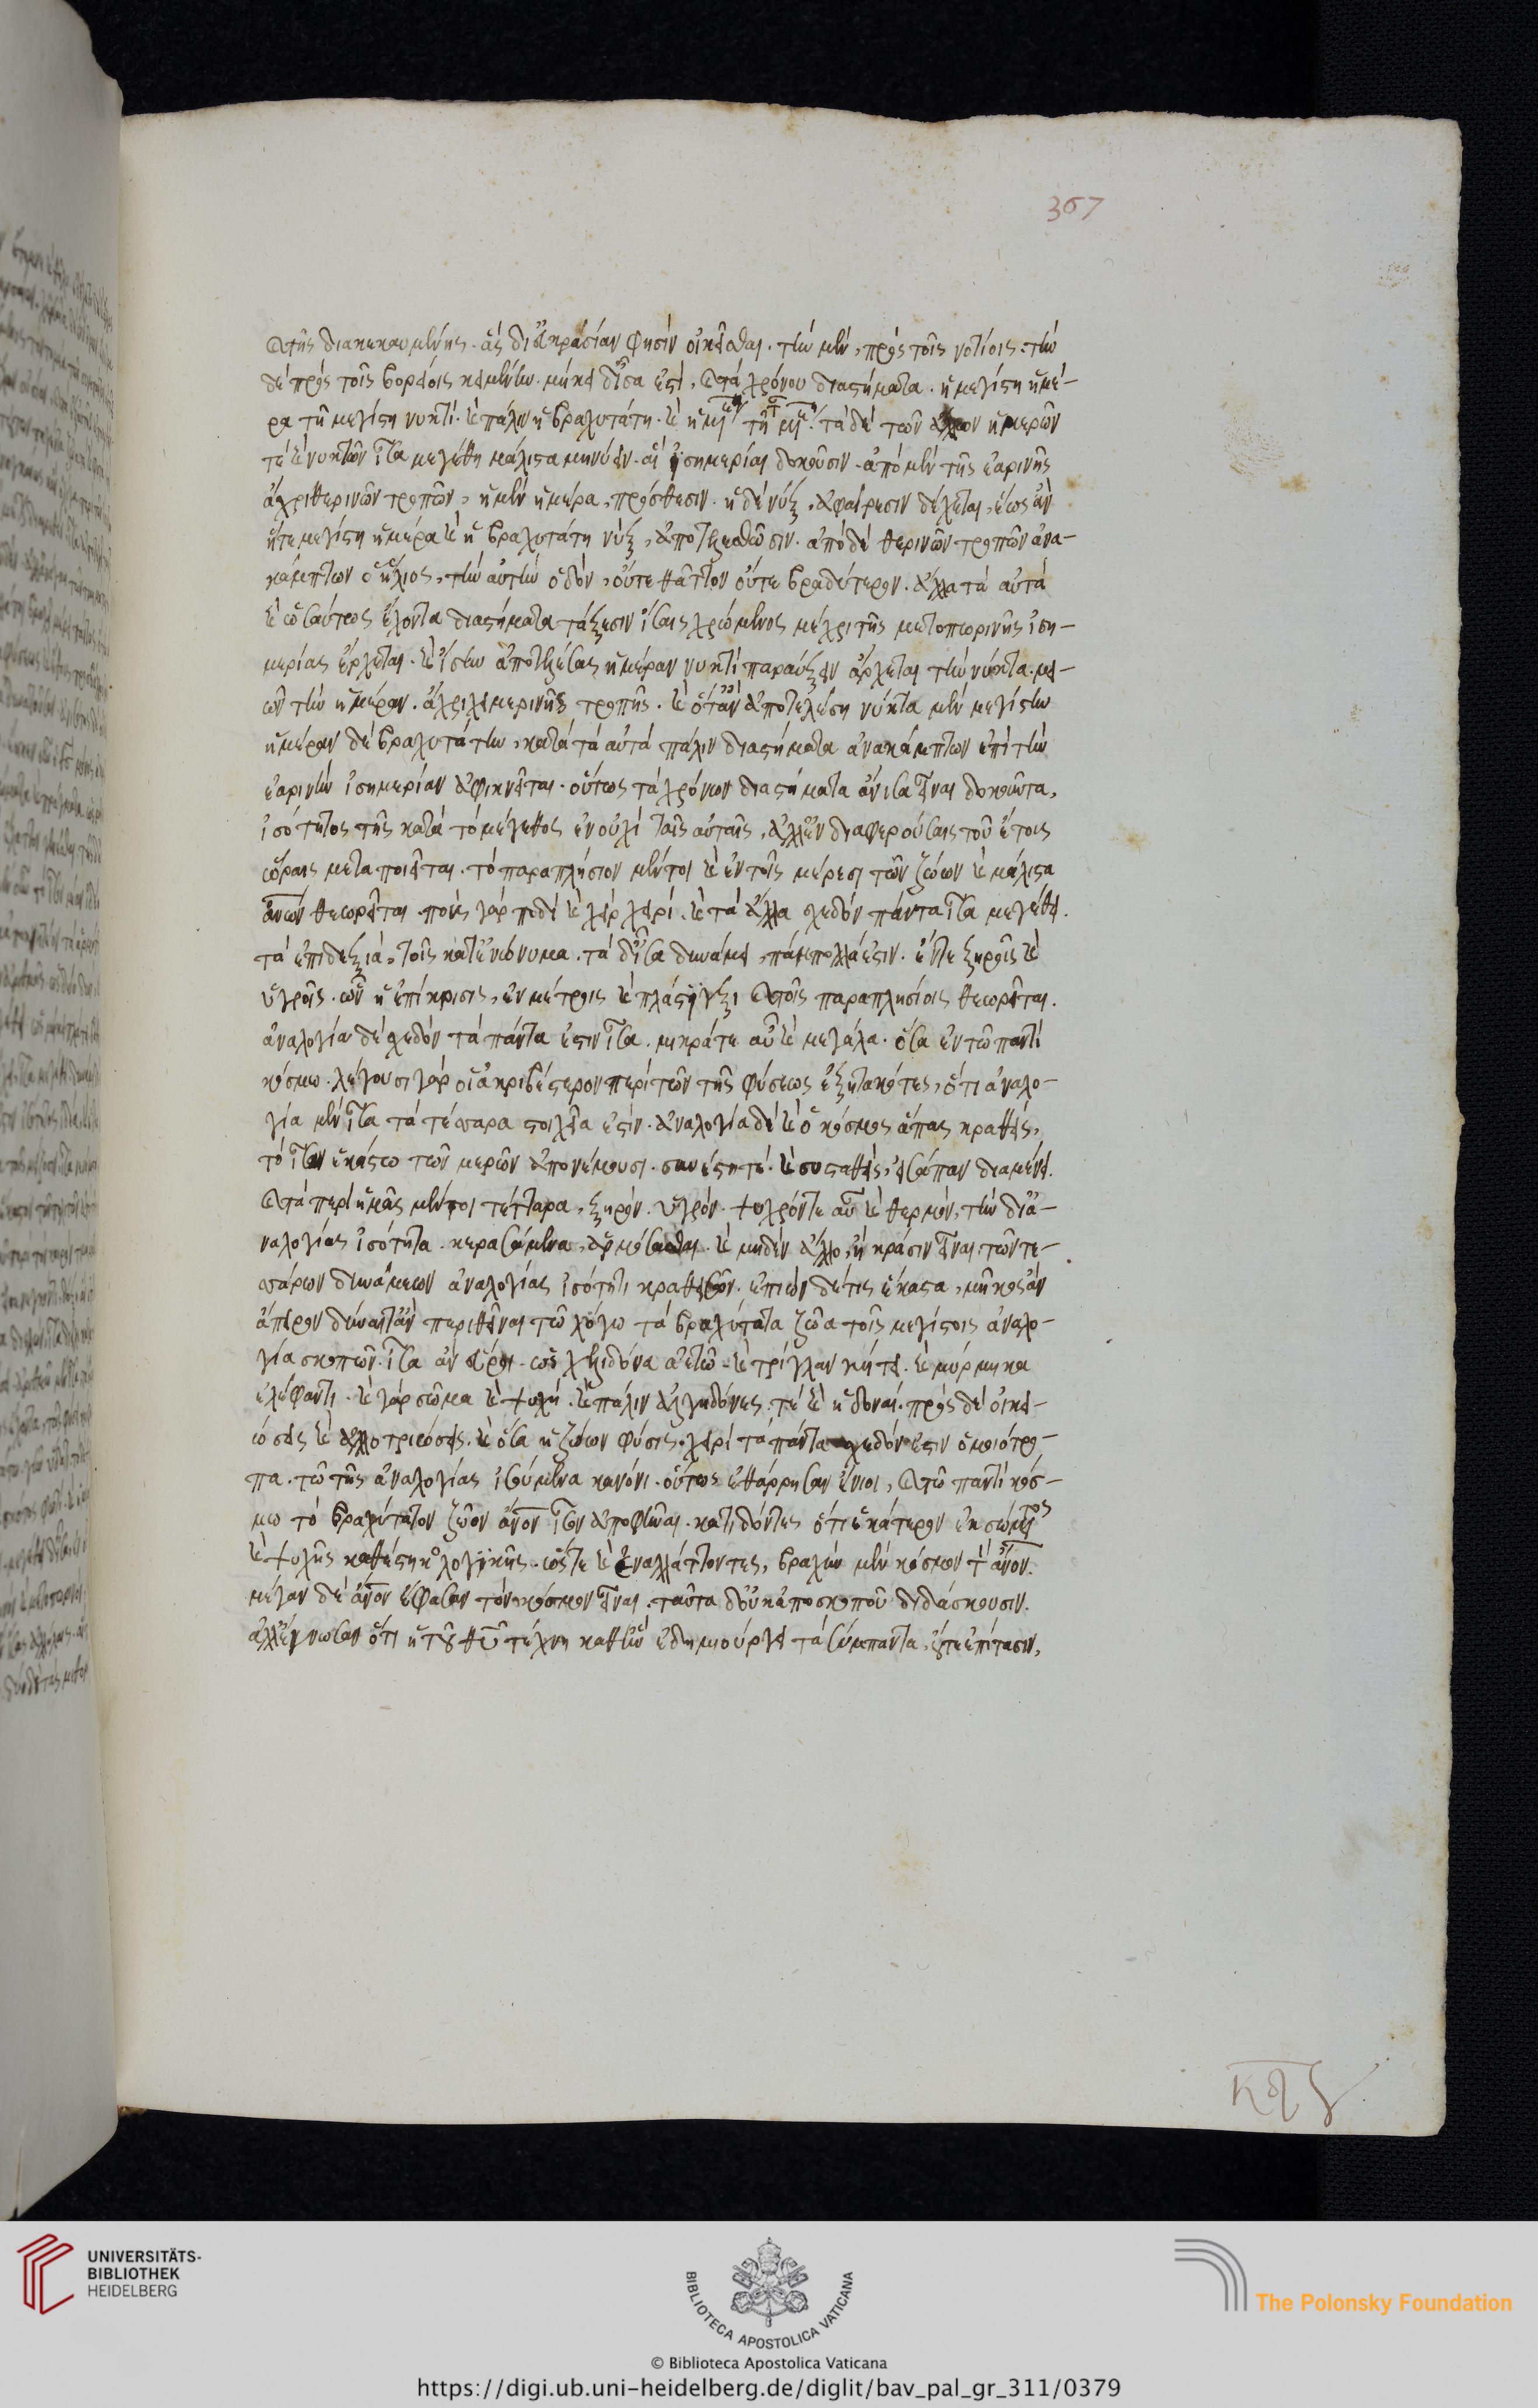 καὶ τῆς διακεκαυμένης. ἃς δι' ἐυκρασίαν φησὶν οἰκεῖσθαι. τὴν μὲν, πρὸς τοῖς νοτίοις. τὴν
δὲ πρὸς τοῖς βορείοις κειμένην. μήκει δ' ἴσα ἐστὶ, καὶ τὰ χρόνου διαστήματα. ἡ μεγίστη ἡμέ-
ρα τῇ μεγίστη νυκτί. καὶ πάλιν ἡ βραχυτάτη. καὶ ἡ μ τῇ μ. τὰ δὲ τῶν ἄλλων ἡμερῶν
τὲ καὶ νυκτῶν ἴσα μεγέθη μάλιστα μηνύειν. αἱ ἰσημερίαι δοκοῦσιν. ἀπὸ μὲν τῆς ἐαρινῆς
ἄχρι θερινῶν τροπῶν, ἡ μὲν ἡμέρα, πρόσθεσιν. ἡ δὲ νὺξ, ἀφαίρεσιν δέχεται, ἕως ἂν
ἥτε μεγίστη ἡμέρα καὶ ἡ βραχυτάτη νὺξ, ἀποτελεσθῶσιν. ἀπὸ δὲ θερινῶν τροπῶν ἀνα-
κάμπτων ὁ ἥλιος, τὴν αὐτὴν ὁδὸν, οὔτε θᾶττον οὔτε βραδύτερον. ἀλλὰ τὰ αὐτὰ
καὶ ὡσαύτως ἔχοντα διαστήματα τάξεσιν ἴσαις χρώμενος μέχρι τῆς μετοπωρινῆς ἰση-
μερίας ἔρχεται. καὶ ἴσην ἀποτελέσας ἡμέραν νυκτὶ παραύξειν ἄρχεται τὴν νύκτα. μει-
ῶν τὴν ἡμέραν. ἄχρι χειμερινῆς τροπῆς. καὶ ὅταν ἀποτελέση νύκτα μὲν μεγίστην
ἡμέραν δὲ βραχυτάτην, κατὰ τὰ αὐτὰ πάλιν διαστήματα ἀνακάμπτων ἐπὶ τὴν
ἐαρινὴν ἰσημερίαν ἀφικνεῖται. οὕτως τὰ χρόνων διαστήματα ἄνισα εἶναι δοκοῦντα,
ἰσότητος τῆς κατὰ τὸ μέγεθος ἐν οὐχὶ ταῖς αὐταῖς, ἀλλ' ἐν διαφερούσαις τοῦ ἔτους
ὥραις μεταποιεῖται. τὸ παραπλήσιον μέντοι καὶ ἐν τοῖς μέρεσι τῶν ζώων καὶ μάλιστα
ἀνῶν θεωρεῖται. ποὺς γὰρ ποδὶ καὶ χεὶρ χειρί. καὶ τὰ ἄλλα σχεδὸν πάντα ἴσα μεγέθει.
τὰ ἐπιδέξια, τοῖς κατ' ἐυώνυμα. τὰ δ' ἴσα δυνάμει, πάμπολλά ἐστιν. ἔν τε ξηροῖς καὶ
ὑγροῖς. ὧν ἡ ἐπίκρισις, ἐν μέτροις καὶ πλάστιγξι καὶ τοῖς παραπλησίοις θεωρεῖται.
ἀναλογία δὲ σχεδὸν τὰ πάντα ἐστιν ἴσα. μικρά τε αὖ καὶ μεγάλα. ὅσα ἐν τῶ παντὶ
κόσμω. λέγουσι γὰρ οἱ ἀκριβέστερον περὶ τῶν τῆς φύσεως ἐξητακότες, ὅτι ἀναλο-
γία μὲν ἴσα τὰ τέσσαρα στοιχεῖα ἐστίν. ἀναλογία δὲ καὶ ὁ κόσμος ἅπας κραθεὶς,
τὸ ἴσον ἑκάστω τῶν μερῶν ἀπονέμουσι. συνέστη τὲ. καὶ συσταθεὶς, εἰσάπαν διαμένει.
καὶ τὰ περὶ ἡμᾶς μέντοι τέτταρα, ξηρόν. ὑγρόν. ψυχρόντε αὖ καὶ θερμόν, τὴν δι' ἀ-
ναλογίας ἰσότητα. κερασάμενα, ἁρμόσασθαι. καὶ μηδὲν ἄλλο, ἢ κράσιν εἶναι, τῶν τε-
σσάρων δυνάμεων ἀναλογίας ἰσότητι κραθεισῶν. ἐπιὼν δέ τις ἕκαστα, μῆκος ἂν
ἄπειρον δύναιτ' ἂν περιθεῖναι τῶ λόγω τὰ βραχύτατα ζῶα τοῖς μεγίστοις ἀναλο-
γία σκοπῶν. ἴσα ἂν εὕροι. ὡς χελιδόνα ἀετῶ. καὶ τρίγλαν κήτει. καὶ μύρμηκα
ἐλέφαντι. καὶ γὰρ σῶμα καὶ ψυχή. καὶ πάλιν ἀλγηδόνες, τὲ καὶ ἡδοναί. πρὸς δὲ οἰκει-
ώσεις καὶ ἀλλοτριώσεις. καὶ ὅσα ἡ ζώων φύσις, χειρὶ τὰ πάντα σχεδόν ἐστιν ὁμοιότρο-
πα. τῶ τῆς ἀναλογίας ἰσούμενα κανόνι. οὕτως ἐθάρρησαν ἔνιοι, καὶ τῶ παντὶ κόσ-
μω τὸ βραχύτατον ζῶον ἄνον ἴσον ἀποφῆναι. κατιδόντες ὅτι ἑκάτερον ἐκ σώματος
καὶ ψυχῆς καθέστηκε λογικῆς. ὥστε καὶ ἐναλλάττοντες, βραχὺν μὲν κόσμον τ ἄνον.
μέγαν δὲ ἄνον ἔφασαν τὸν κόσμον εἶναι. ταῦτα δ' οὐκ ἀπὸ σκοποῦ διδάσκουσιν.
ἀλλ' ἔγνωσαν ὅτι ἡ τοῦ θῦ τέχνη καθ' ἣν ἐδημιούργει τὰ σύμπαντα, οὔτε ἐπίτασιν,
367
κθζ
UNIVERSITÄTS-
BIBLIOTHEK
HEIDELBERG
BIBLIOTECA APOSTOLICA VATICANA
The Polonsky Foundation
© Biblioteca Apostolica Vaticana
https://digi.ub.uni-heidelberg.de/diglit/bav_pal_gr_311/0379